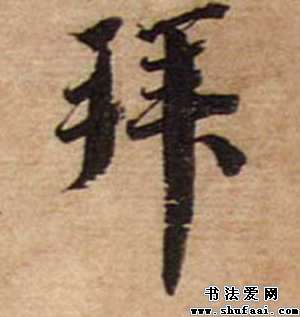 拜
书法爱网
www.shufaai.com